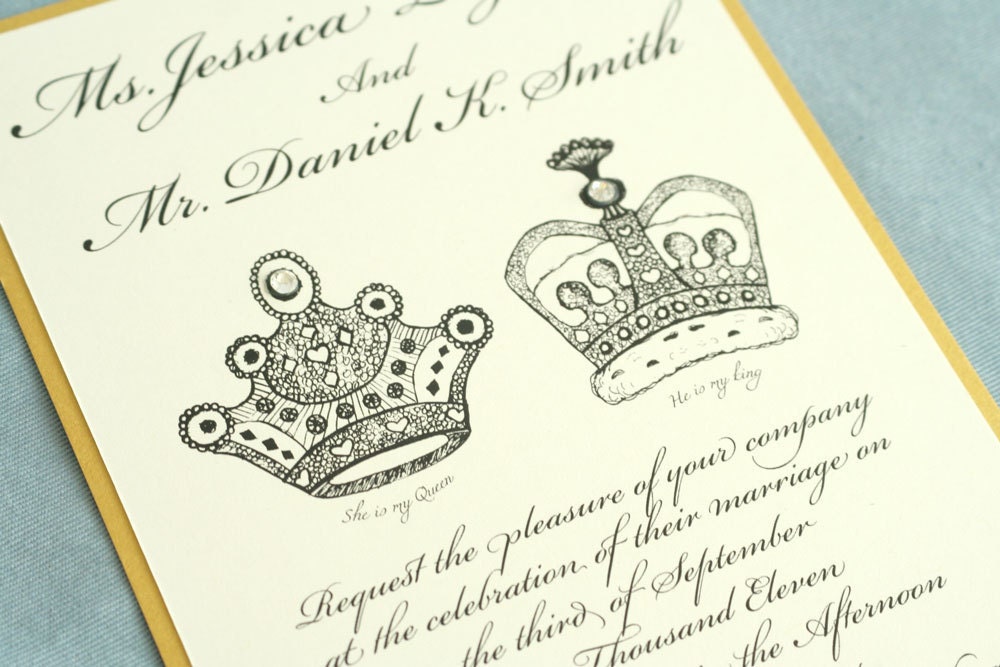 Ms. Jessica
And
Mr. Daniel K. Smith
She is my Queen
He is my king
Request the pleasure of your company
at the celebration of their marriage on
the third of September
Thousand Eleven
the Afternoon